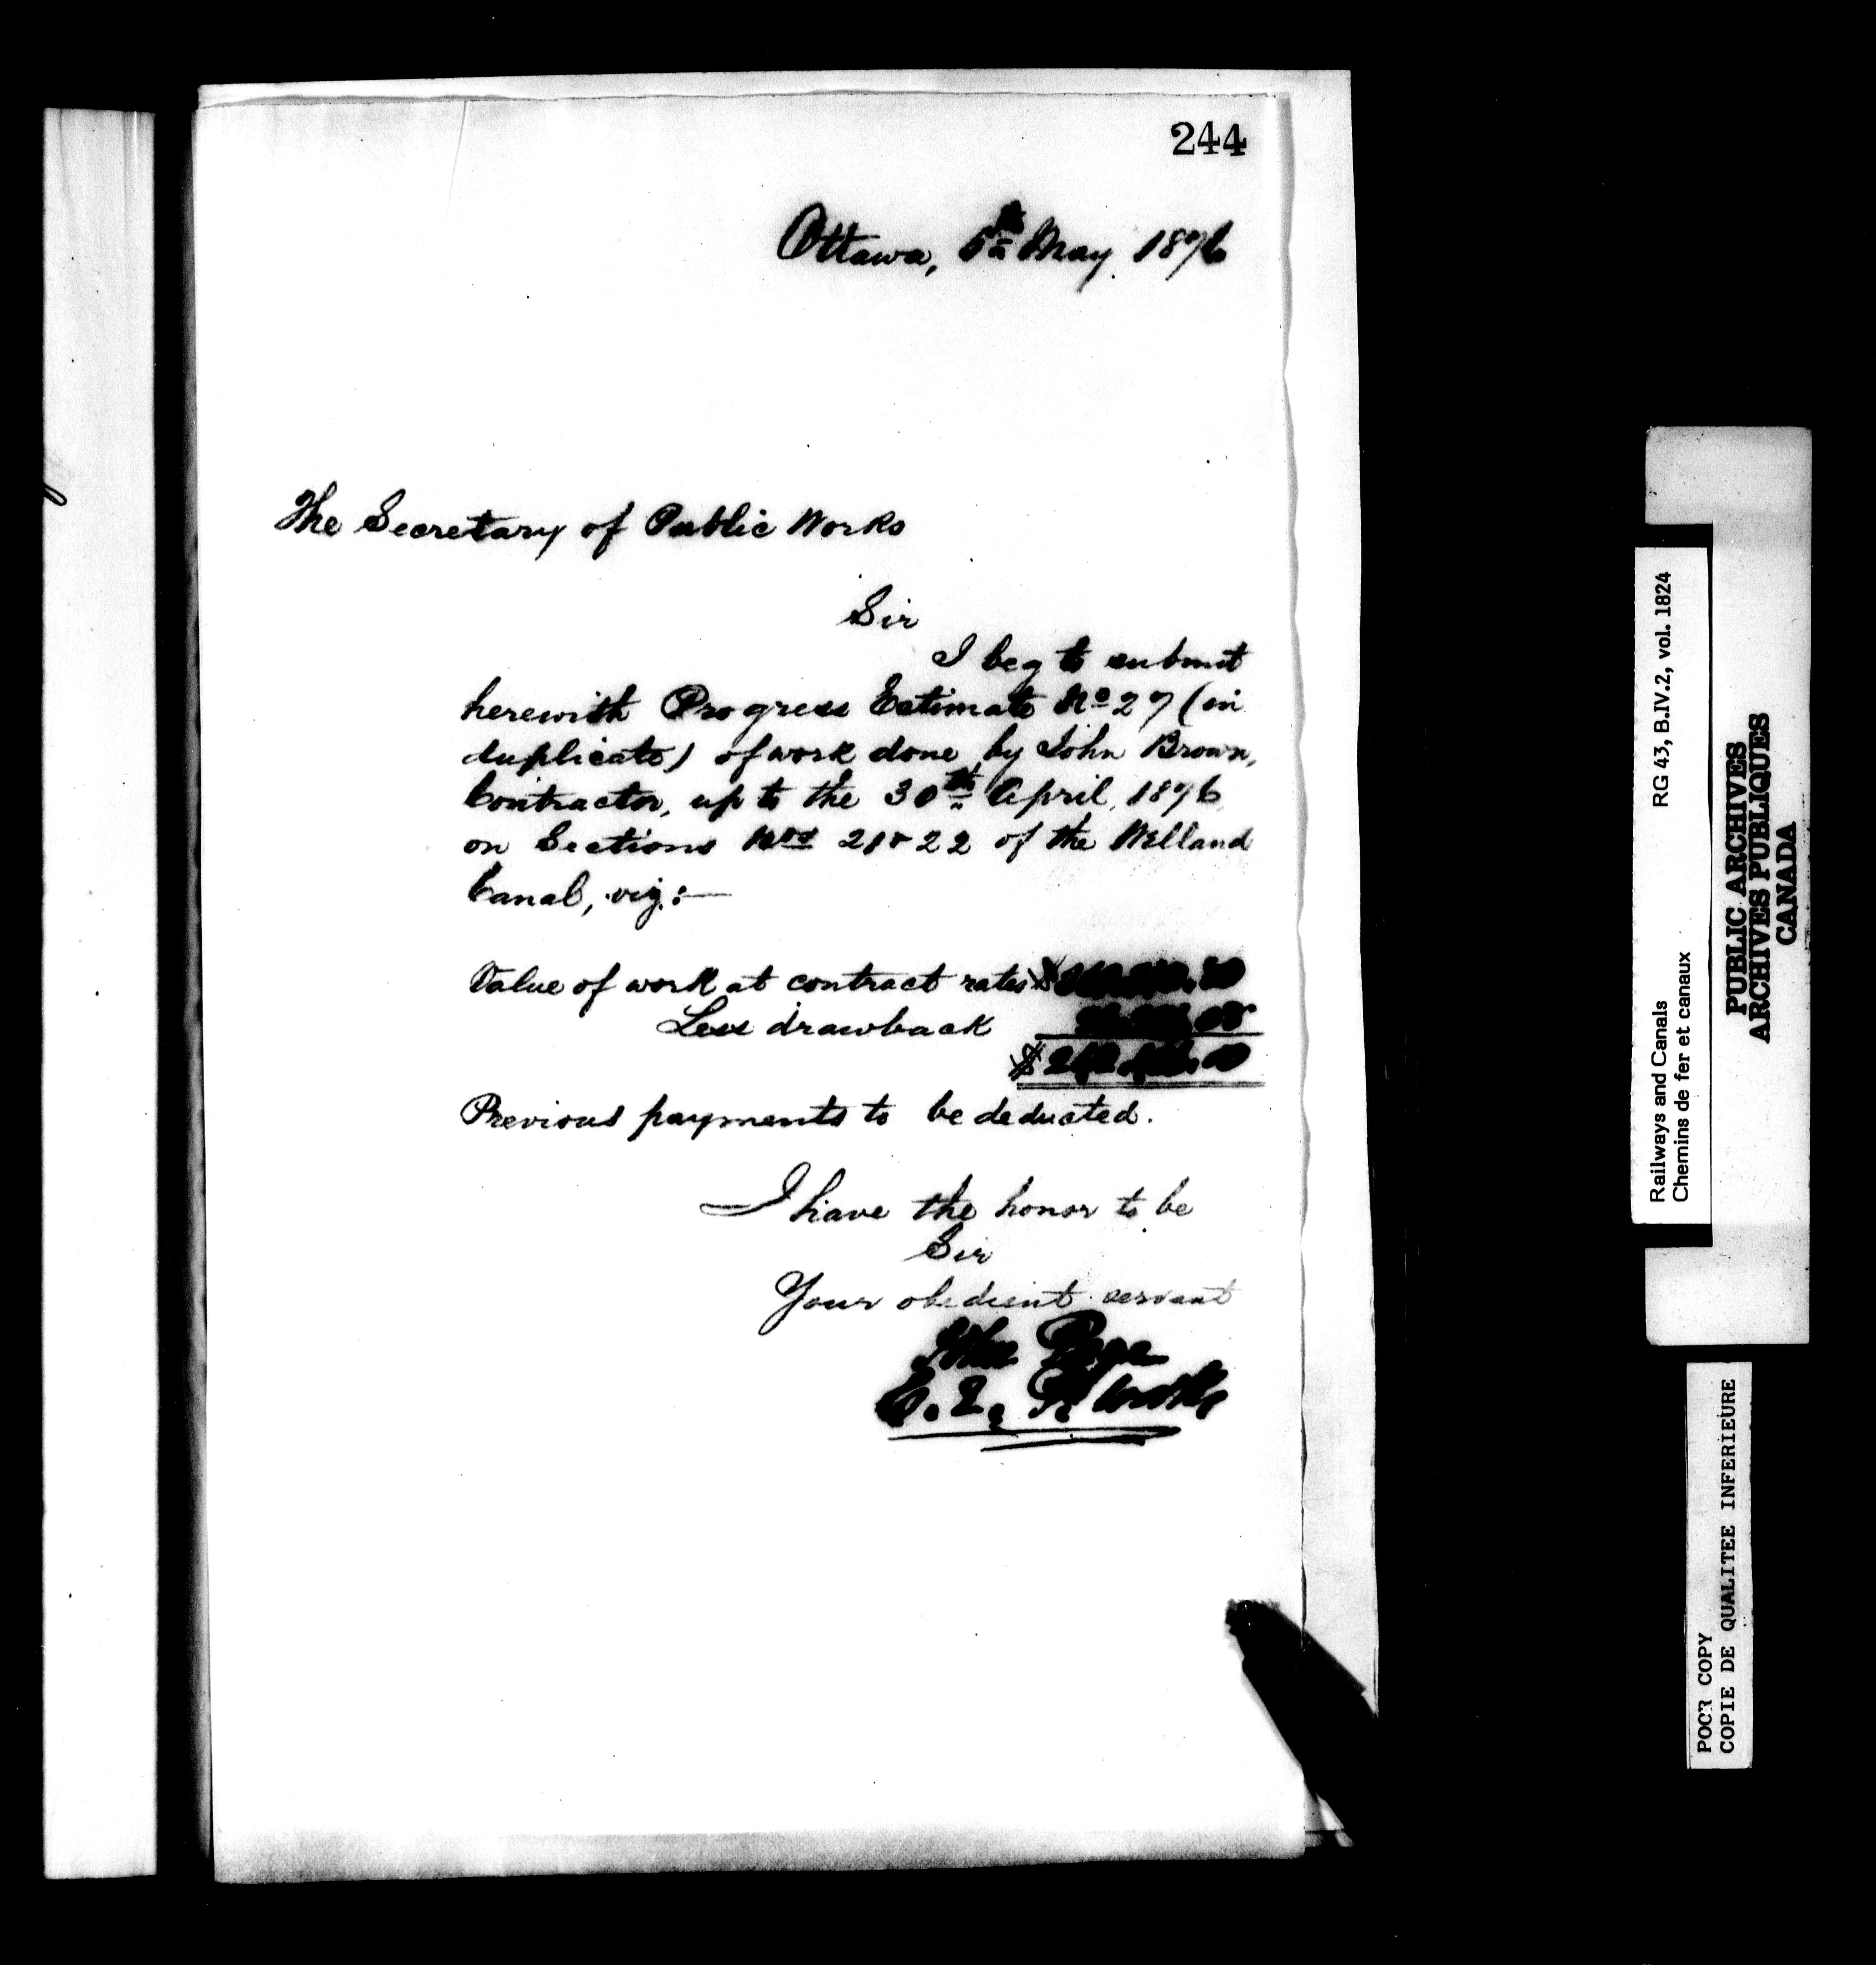 244
Ottawa, 5th May 1876
The Secretary of Public Works
Sir
I beg to submit
herewith Progress Estimate No 27 (in
duplicate) of work done by John Brown,
Contractor, up to the 30th April, 1876
on Sections Nos 21 & 22 of the Welland
Canal, viz:—
Value of work at contract rates $
Less drawback
$
Previous payments to be deducted.
I have the honor to be
Sir
Your obedient servant
John Page
C. E. P. Works
Railways and Canals RG 43, B.IV.2, vol. 1824
Chemins de fer et canaux
PUBLIC ARCHIVES
ARCHIVES PUBLIQUES
CANADA
POOR COPY
COPIE DE QUALITEE INFERIEURE